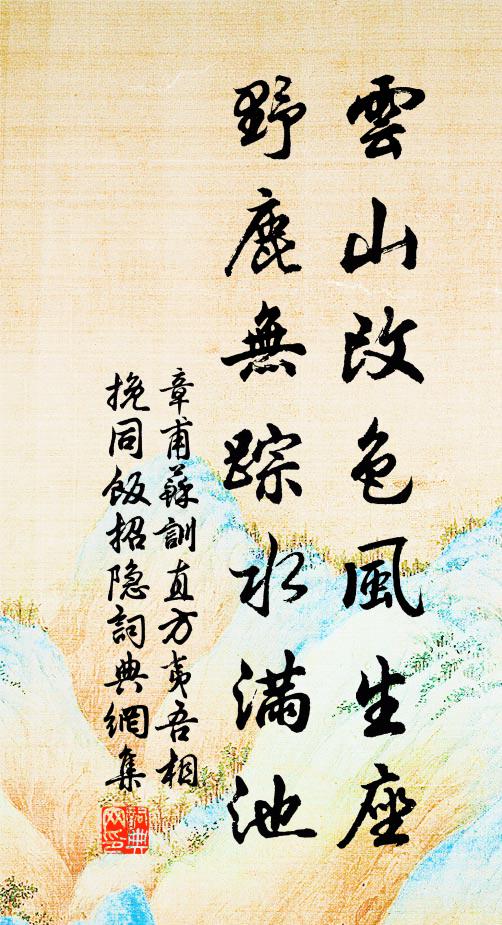 雲山改色風生座
野鹿無踪水滿池
章甫蘇訓直方夷吾相
挽同飯招隐詞典網集
詞典
网印